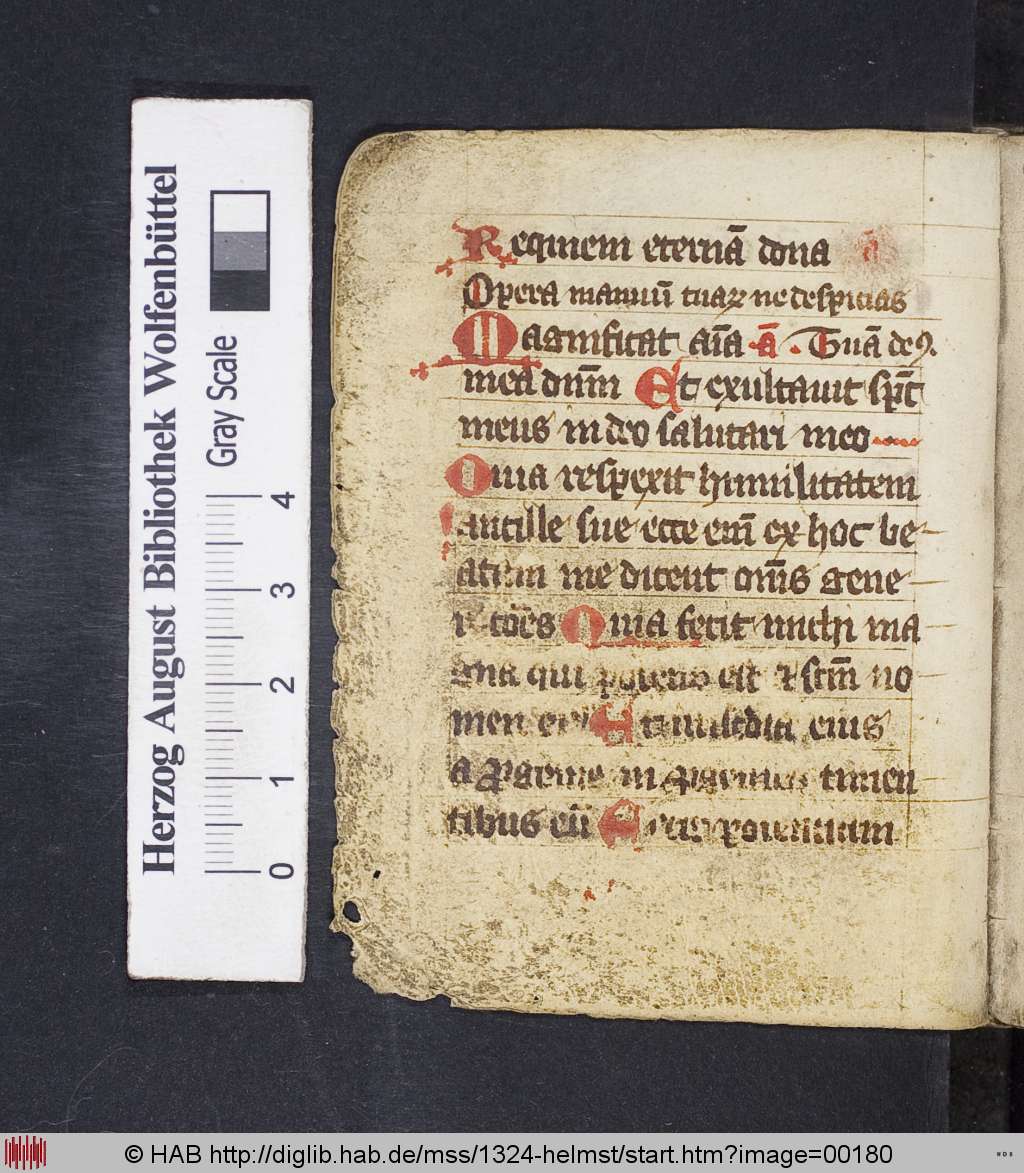 Herzog August Bibliothek Wolfenbüttel
Gray Scale
0 1 2 3 4
Requiem eternā dona a̅
Opera manuū tuaꝝ ne despicias
Magnificat aīa a̅ . Tuā de
mea dn̄m Et exultauit sp̄c
meus in deo salutari meo
Quia respexit humilitatem
ancille sue ecce em̄ ex hoc be
atam me dicent om̄s gene
r tōes Quia fecit michi ma
gna qui potens est ⁊ scm̄ no
men ei Et ...dia eius
a ꝓgenie in ꝓgenies timen
tibus eū Fecit potentiam
© HAB http://diglib.hab.de/mss/1324-helmst/start.htm?image=00180